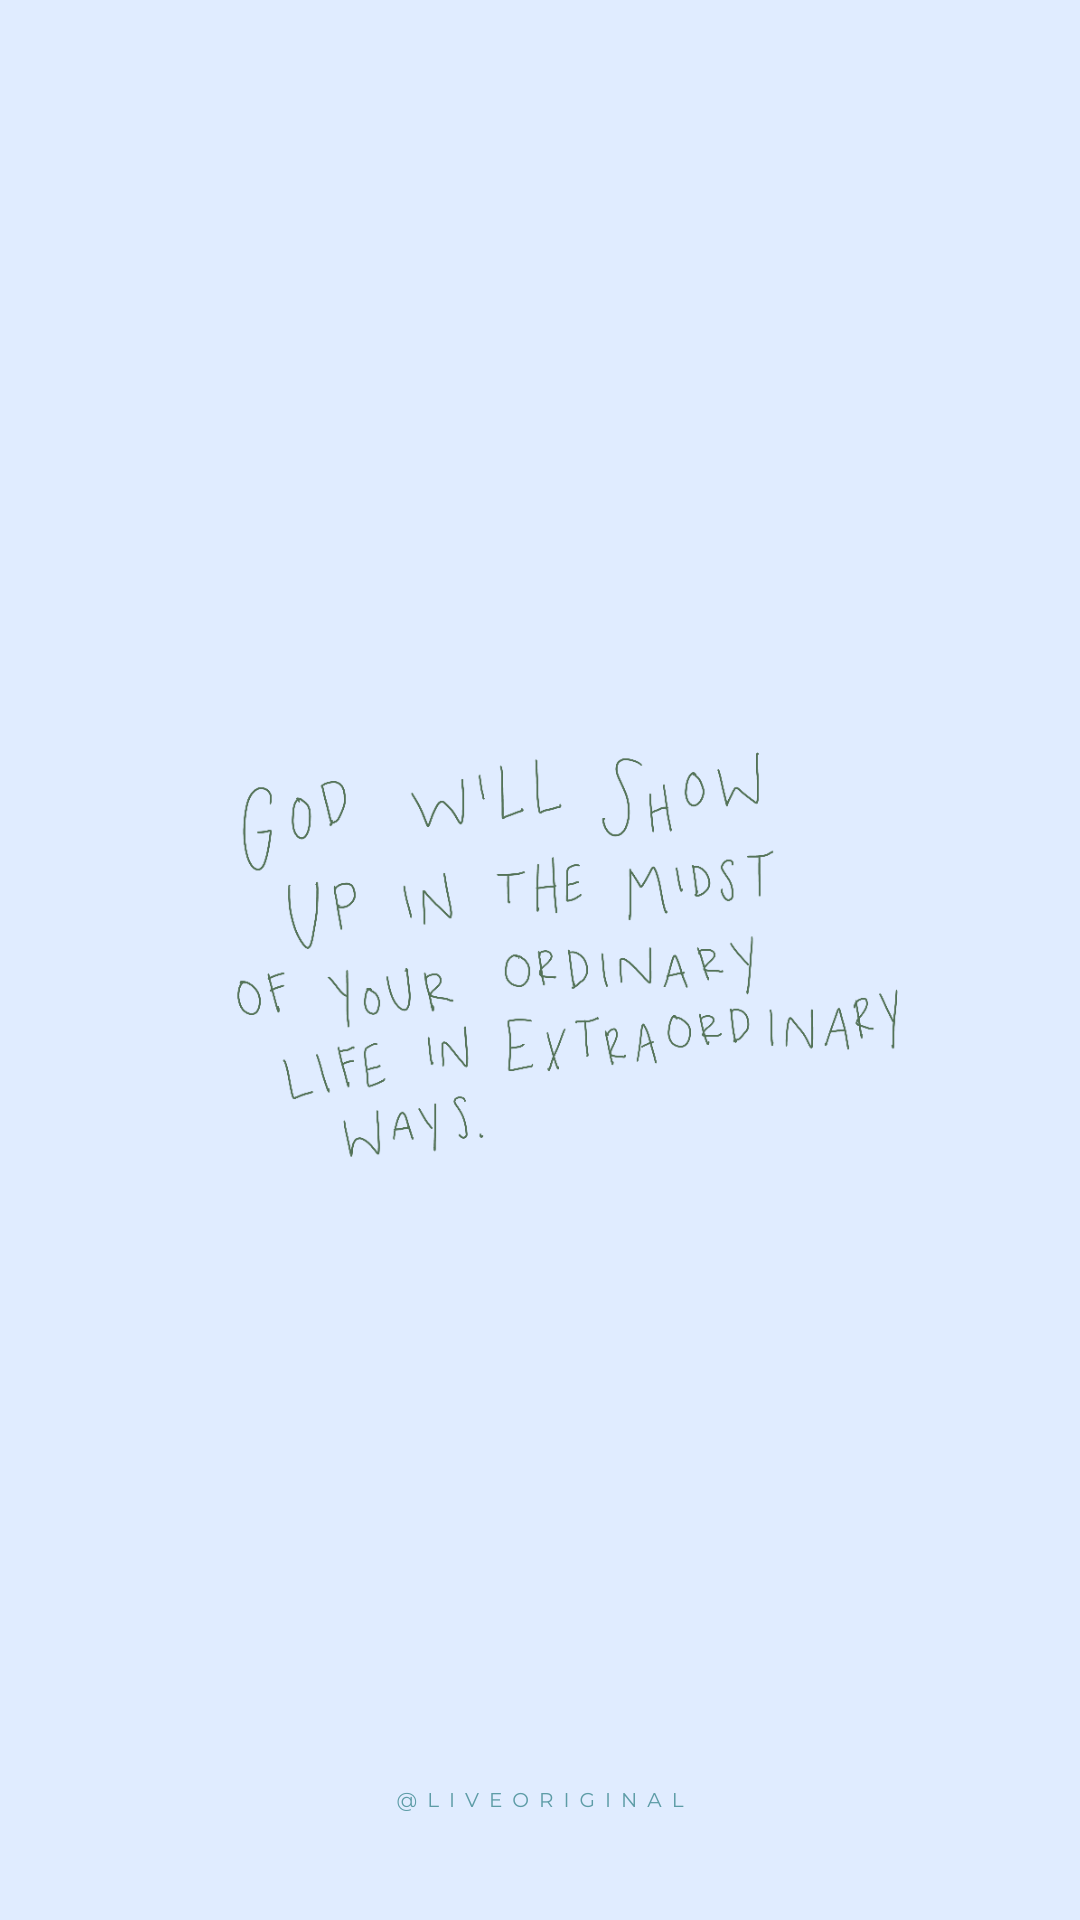 GOD WILL SHOW
UP IN THE MIDST
OF YOUR ORDINARY
LIFE IN EXTRAORDINARY
WAYS.
@LIVEORIGINAL